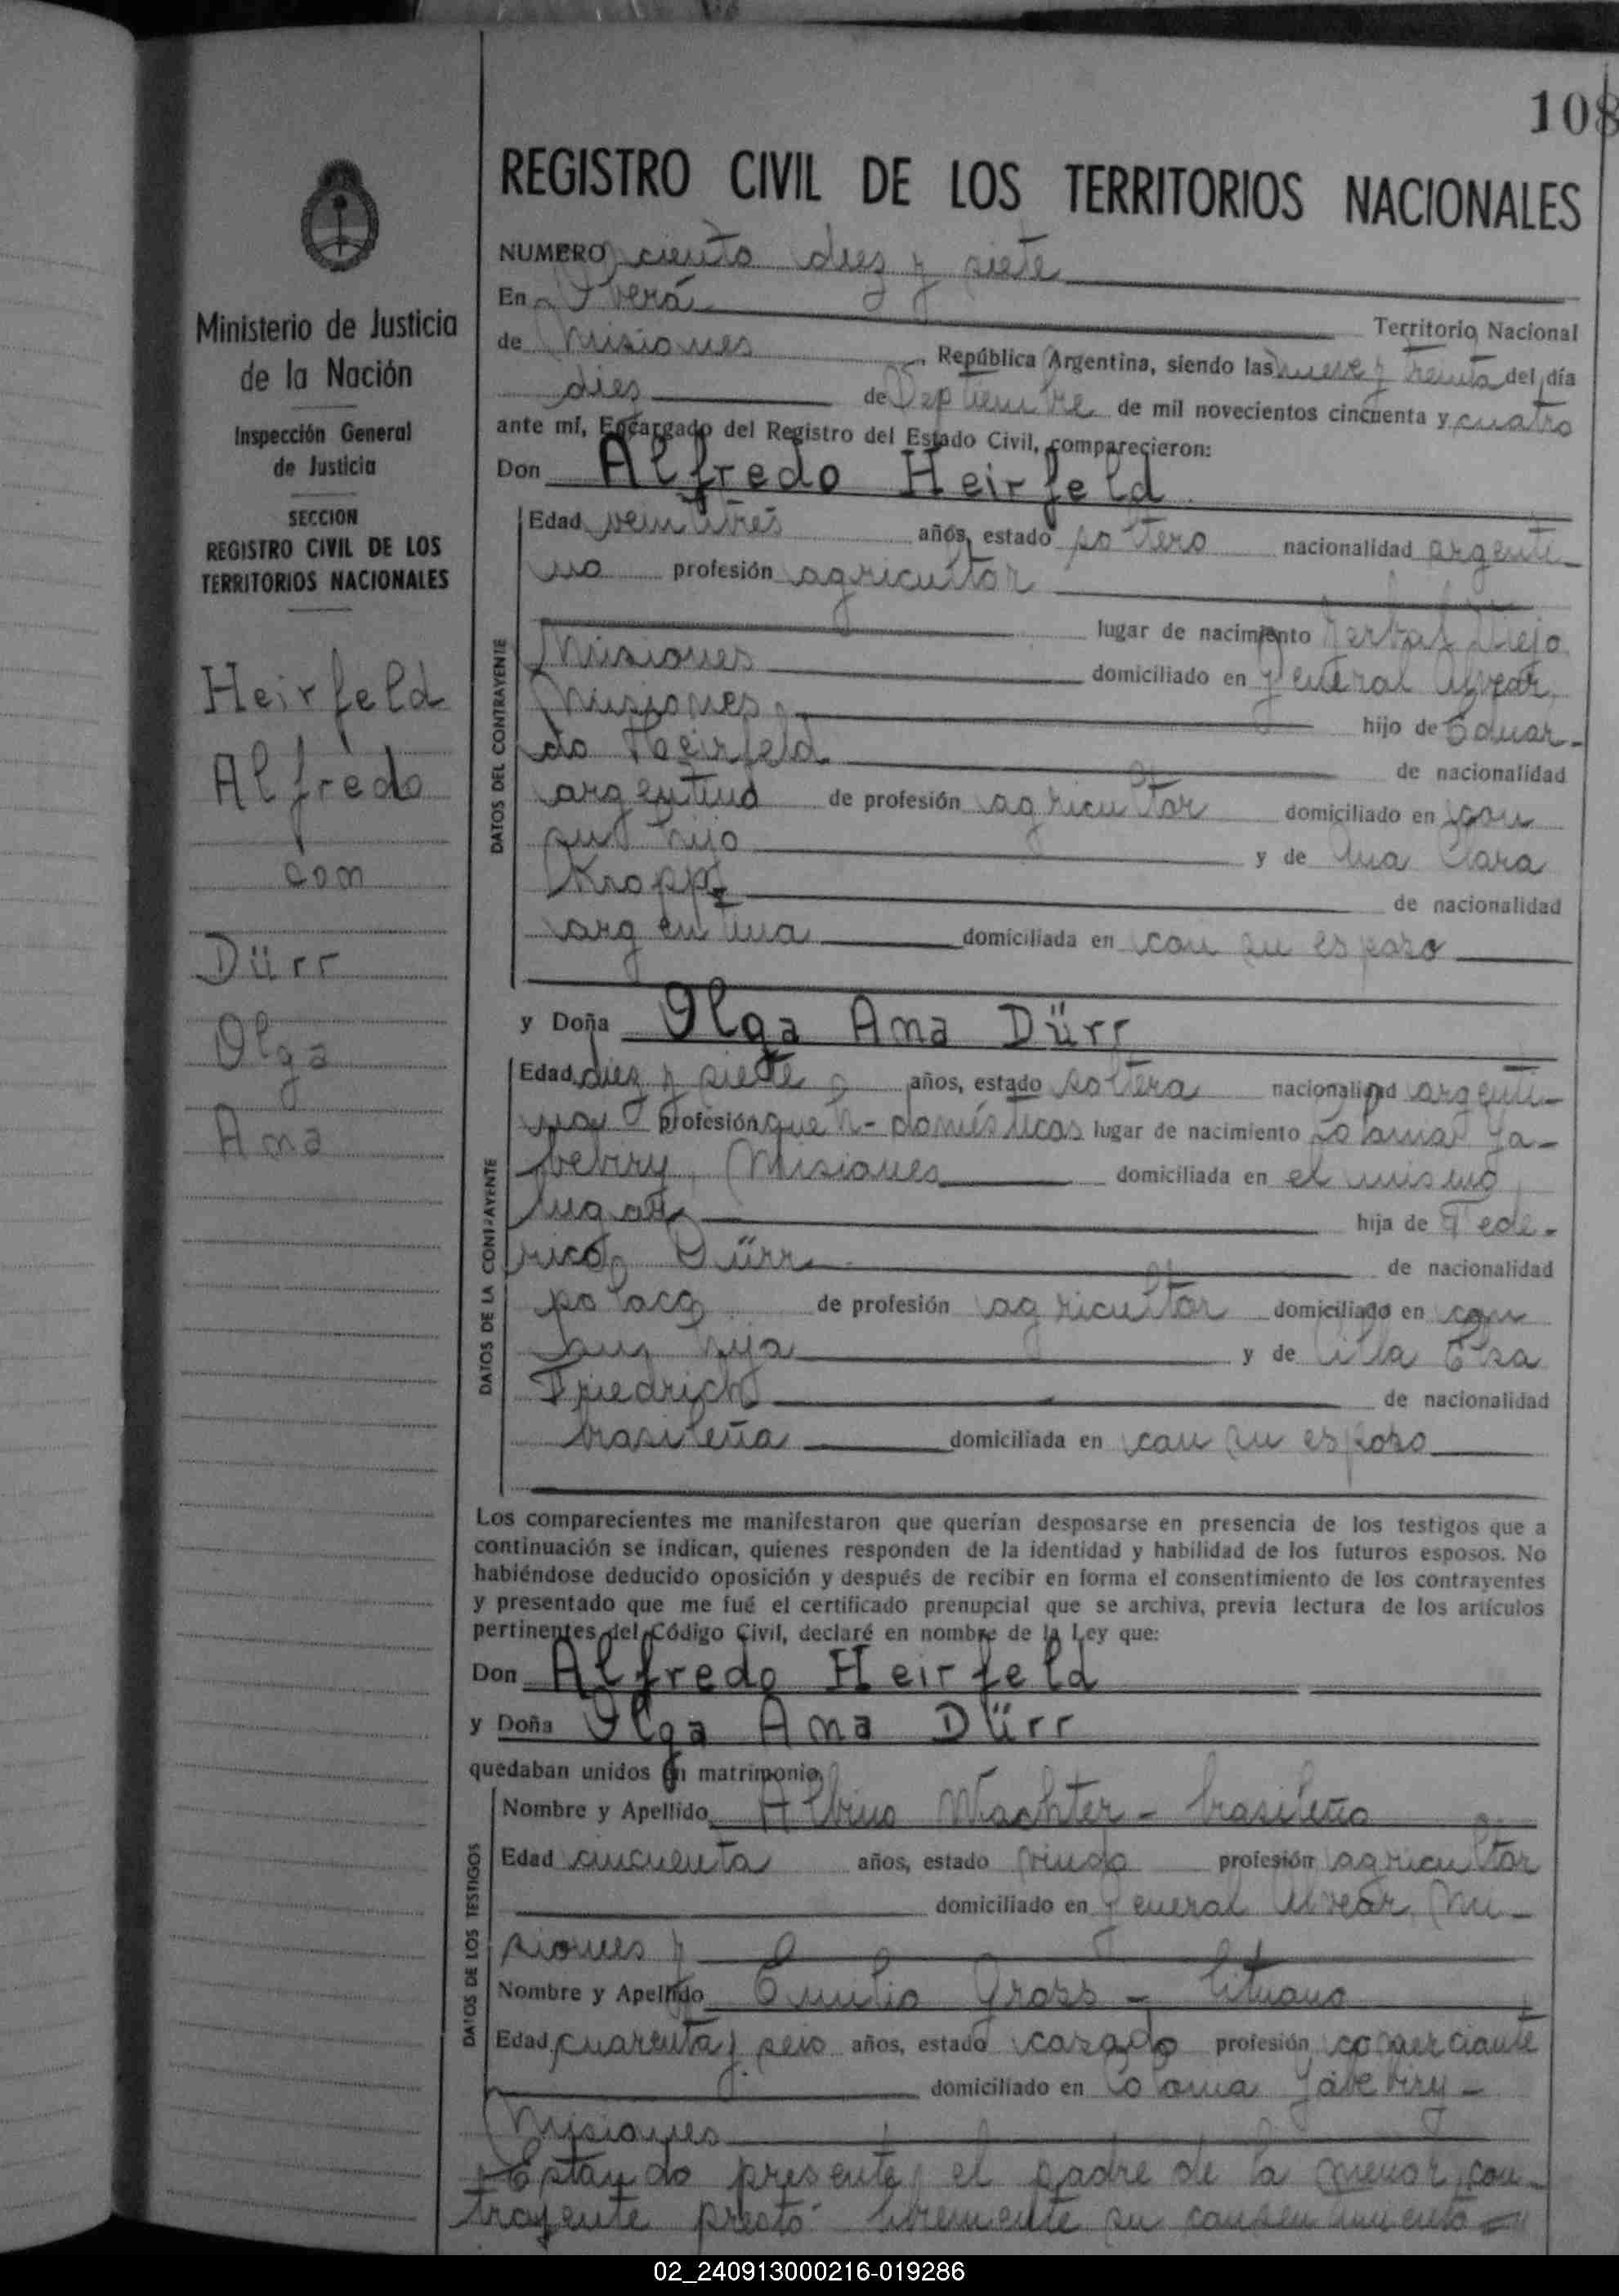 108
REGISTRO CIVIL DE LOS TERRITORIOS NACIONALES
Ministerio de Justicia
de la Nación
Inspección General
de Justicia
SECCION
REGISTRO CIVIL DE LOS
TERRITORIOS NACIONALES
Heirfeld
Alfredo
con
Dürr
Olga
Ana
NUMERO ciento diez y siete
En Yverá Territorio Nacional
de Misiones República Argentina, siendo las nueve y treinta del día
dies de Septiembre de mil novecientos cincuenta y cuatro
ante mí, Encargado del Registro del Estado Civil, comparecieron:
Don Alfredo Heirfeld
DATOS DEL CONTRAYENTE
Edad veintitres años, estado soltero nacionalidad argenti-
no profesión agricultor
lugar de nacimiento Yerbal Viejo
Misiones domiciliado en General Alvear,
Misiones hijo de Eduar-
do Heirfeld de nacionalidad
argentino de profesión agricultor domiciliado en con
su hijo y de Ana Clara
Kropp de nacionalidad
argentina domiciliada en con su esposo
y Doña Olga Ana Dürr
DATOS DE LA CONTRAYENTE
Edad diez y siete años, estado soltera nacionalidad argenti-
na profesión queh- domésticas lugar de nacimiento Colonia Ya-
bebiry, Misiones domiciliada en el mismo
lugar hija de Fede-
rico Dürr de nacionalidad
polaca de profesión agricultor domiciliado en con
su hija y de Lilla Elsa
Friedrich de nacionalidad
brasileña domiciliada en con su esposo
Los comparecientes me manifestaron que querían desposarse en presencia de los testigos que a
continuación se indican, quienes responden de la identidad y habilidad de los futuros esposos. No
habiéndose deducido oposición y después de recibir en forma el consentimiento de los contrayentes
y presentado que me fué el certificado prenupcial que se archiva, previa lectura de los artículos
pertinentes del Código Civil, declaré en nombre de la Ley que:
Don Alfredo Heirfeld
y Doña Olga Ana Dürr
quedaban unidos en matrimonio
DATOS DE LOS TESTIGOS
Nombre y Apellido Albino Wachter - brasileño
Edad cincuenta años, estado viudo profesión agricultor
domiciliado en General Alvear, Mi-
siones y
Nombre y Apellido Emilio Gross - lituano
Edad cuarenta y seis años, estado casado profesión comerciante
domiciliado en Colonia Yabebiry -
Misiones
Estando presente el padre de la menor con-
trayente prestó libremente su consentimiento
02_240913000216-019286